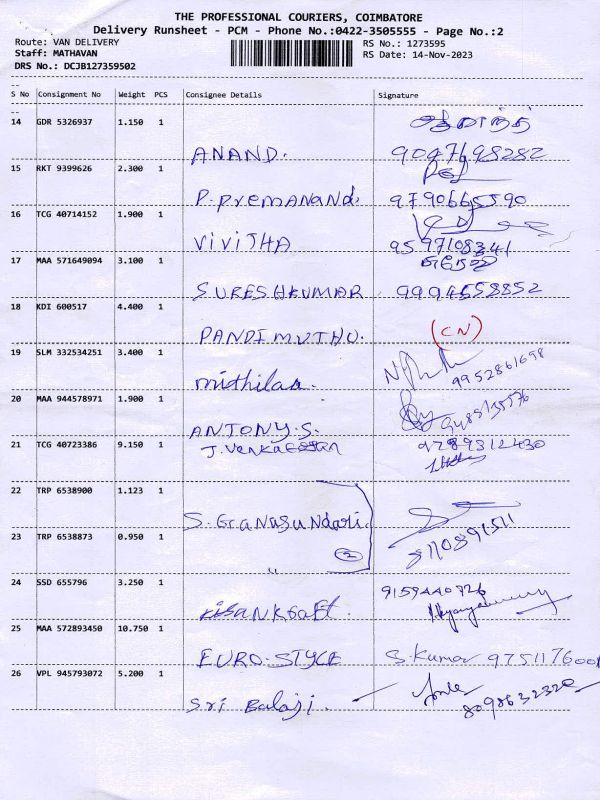 THE PROFESSIONAL COURIERS, COIMBATORE
Delivery Runsheet - PCM - Phone No.:0422-3505555 - Page No.:2
Route: VAN DELIVERY RS No.: 1273595
Staff: MATHAVAN RS Date: 14-Nov-2023
DRS No.: DCJB127359502
S No Consignment No Weight PCS Consignee Details Signature
14 GDR 5326937 1.150 1
ANAND. 9047698282
15 RKT 9399626 2.300 1
P. PREMANANd. 9790665590
16 TCG 40714152 1.900 1
VIVITHA 9597108341
17 MAA 571649094 3.100 1
SURESHKUMAR 9994558852
18 KDI 600517 4.400 1
PANDIMUTHU. (CN)
19 SLM 332534251 3.400 1
mithilaa. 9952861698
20 MAA 944578971 1.900 1
ANTONY.S.
21 TCG 40723386 9.150 1
J. Venkatesan 9789312430
22 TRP 6538900 1.123 1
S. Gnanasundari.
2
23 TRP 6538873 0.950 1
"
24 SSD 655796 3.250 1 9159440726
25 MAA 572893450 10.750 1
EURO.STYLE S. Kumar 975117600
26 VPL 945793072 5.200 1
Sri Balaji. 8098632320